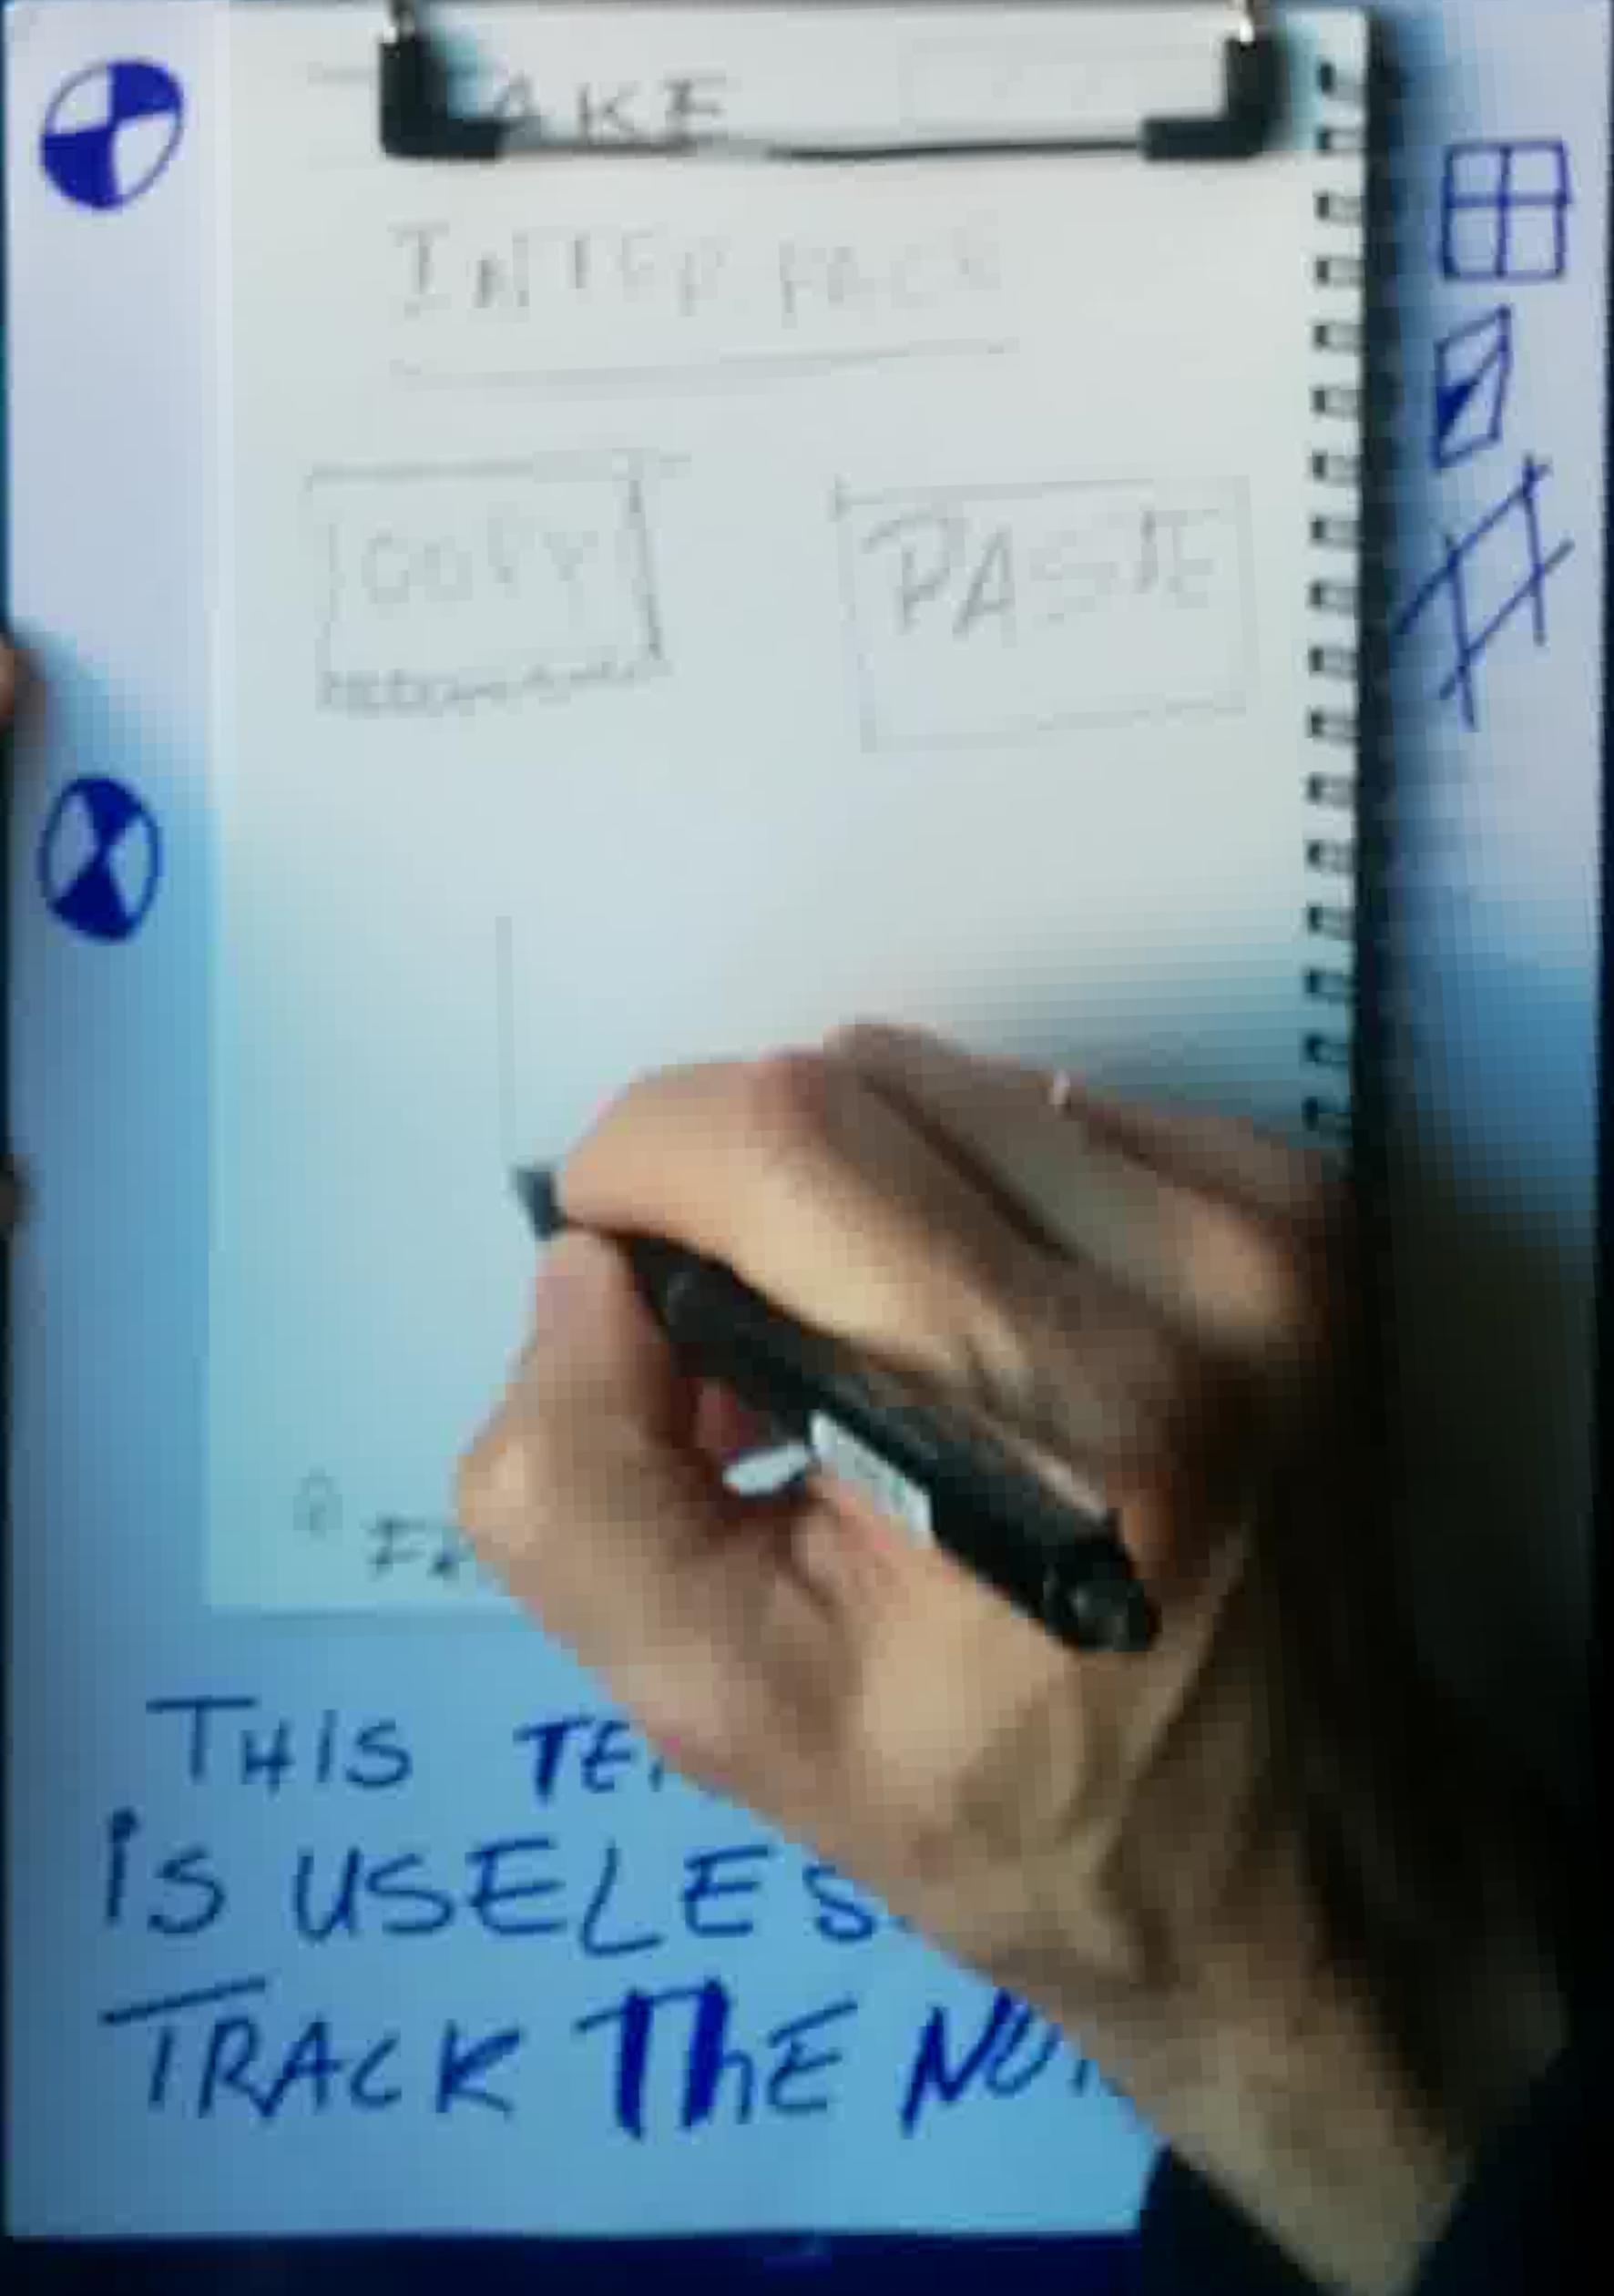 AKE
INTERFACE
COPY PASTE
THIS TE
is USELES
TRACK ThE